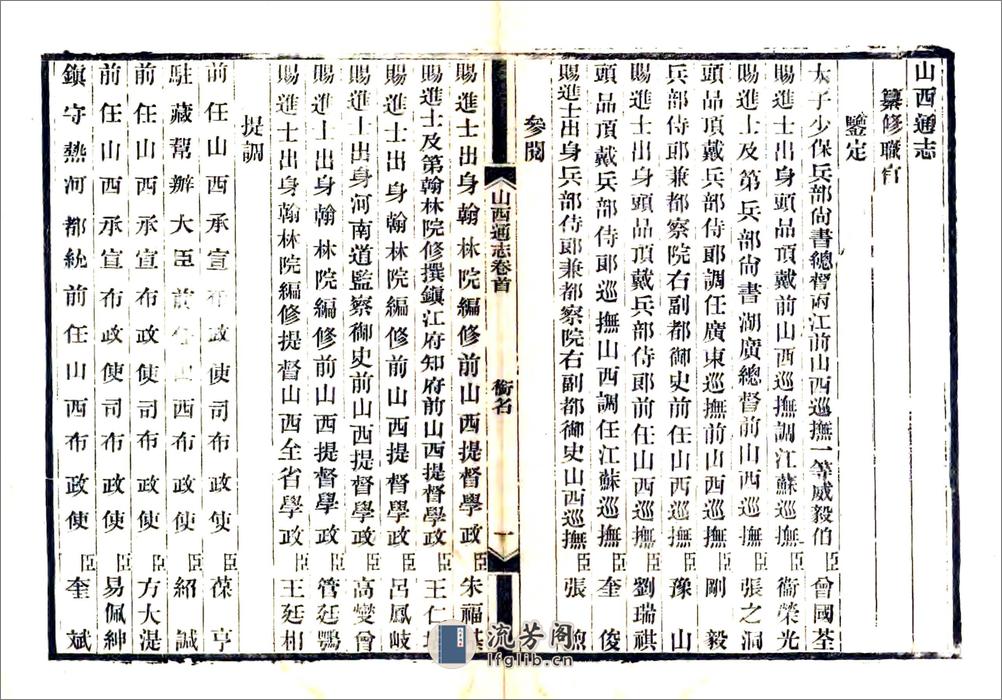 山西通志
纂修職官
鑒定
太子少保兵部尚書總督兩江前山西巡撫一等威毅伯臣曾國荃
賜進士出身頭品頂戴前山西巡撫調江蘇巡撫臣衞榮光
賜進士及第兵部尚書湖廣總督前山西巡撫臣張之洞
頭品頂戴兵部侍郎調任廣東巡撫前山西巡撫臣剛毅
兵部侍郎兼都察院右副都御史前任山西巡撫臣豫山
賜進士出身頭品頂戴兵部侍郎前任山西巡撫臣劉瑞祺
頭品頂戴兵部侍郎巡撫山西調任江蘇巡撫臣奎俊
賜進士出身兵部侍郎兼都察院右副都御史山西巡撫臣張煦
參閱
山西通志卷首 銜名 一
賜進士出身翰林院編修前山西提督學政臣朱福基
賜進士及第翰林院修撰鎮江府知府前山西提督學政臣王仁
賜進士出身翰林院編修前山西提督學政臣呂鳳岐
賜進士出身河南道監察御史前山西提督學政臣高燮曾
賜進士出身翰林院編修前山西提督學政臣管廷鶚
賜進士出身翰林院編修提督山西全省學政臣王廷相
提調
前任山西承宣布政使司布政使臣葆亨
駐藏幫辦大臣前任山西布政使臣紹諴
前任山西承宣布政使司布政使臣方大湜
前任山西承宣布政使司布政使臣易佩紳
鎮守熱河都統前任山西布政使臣奎斌
流芳阁
lfglib.cn